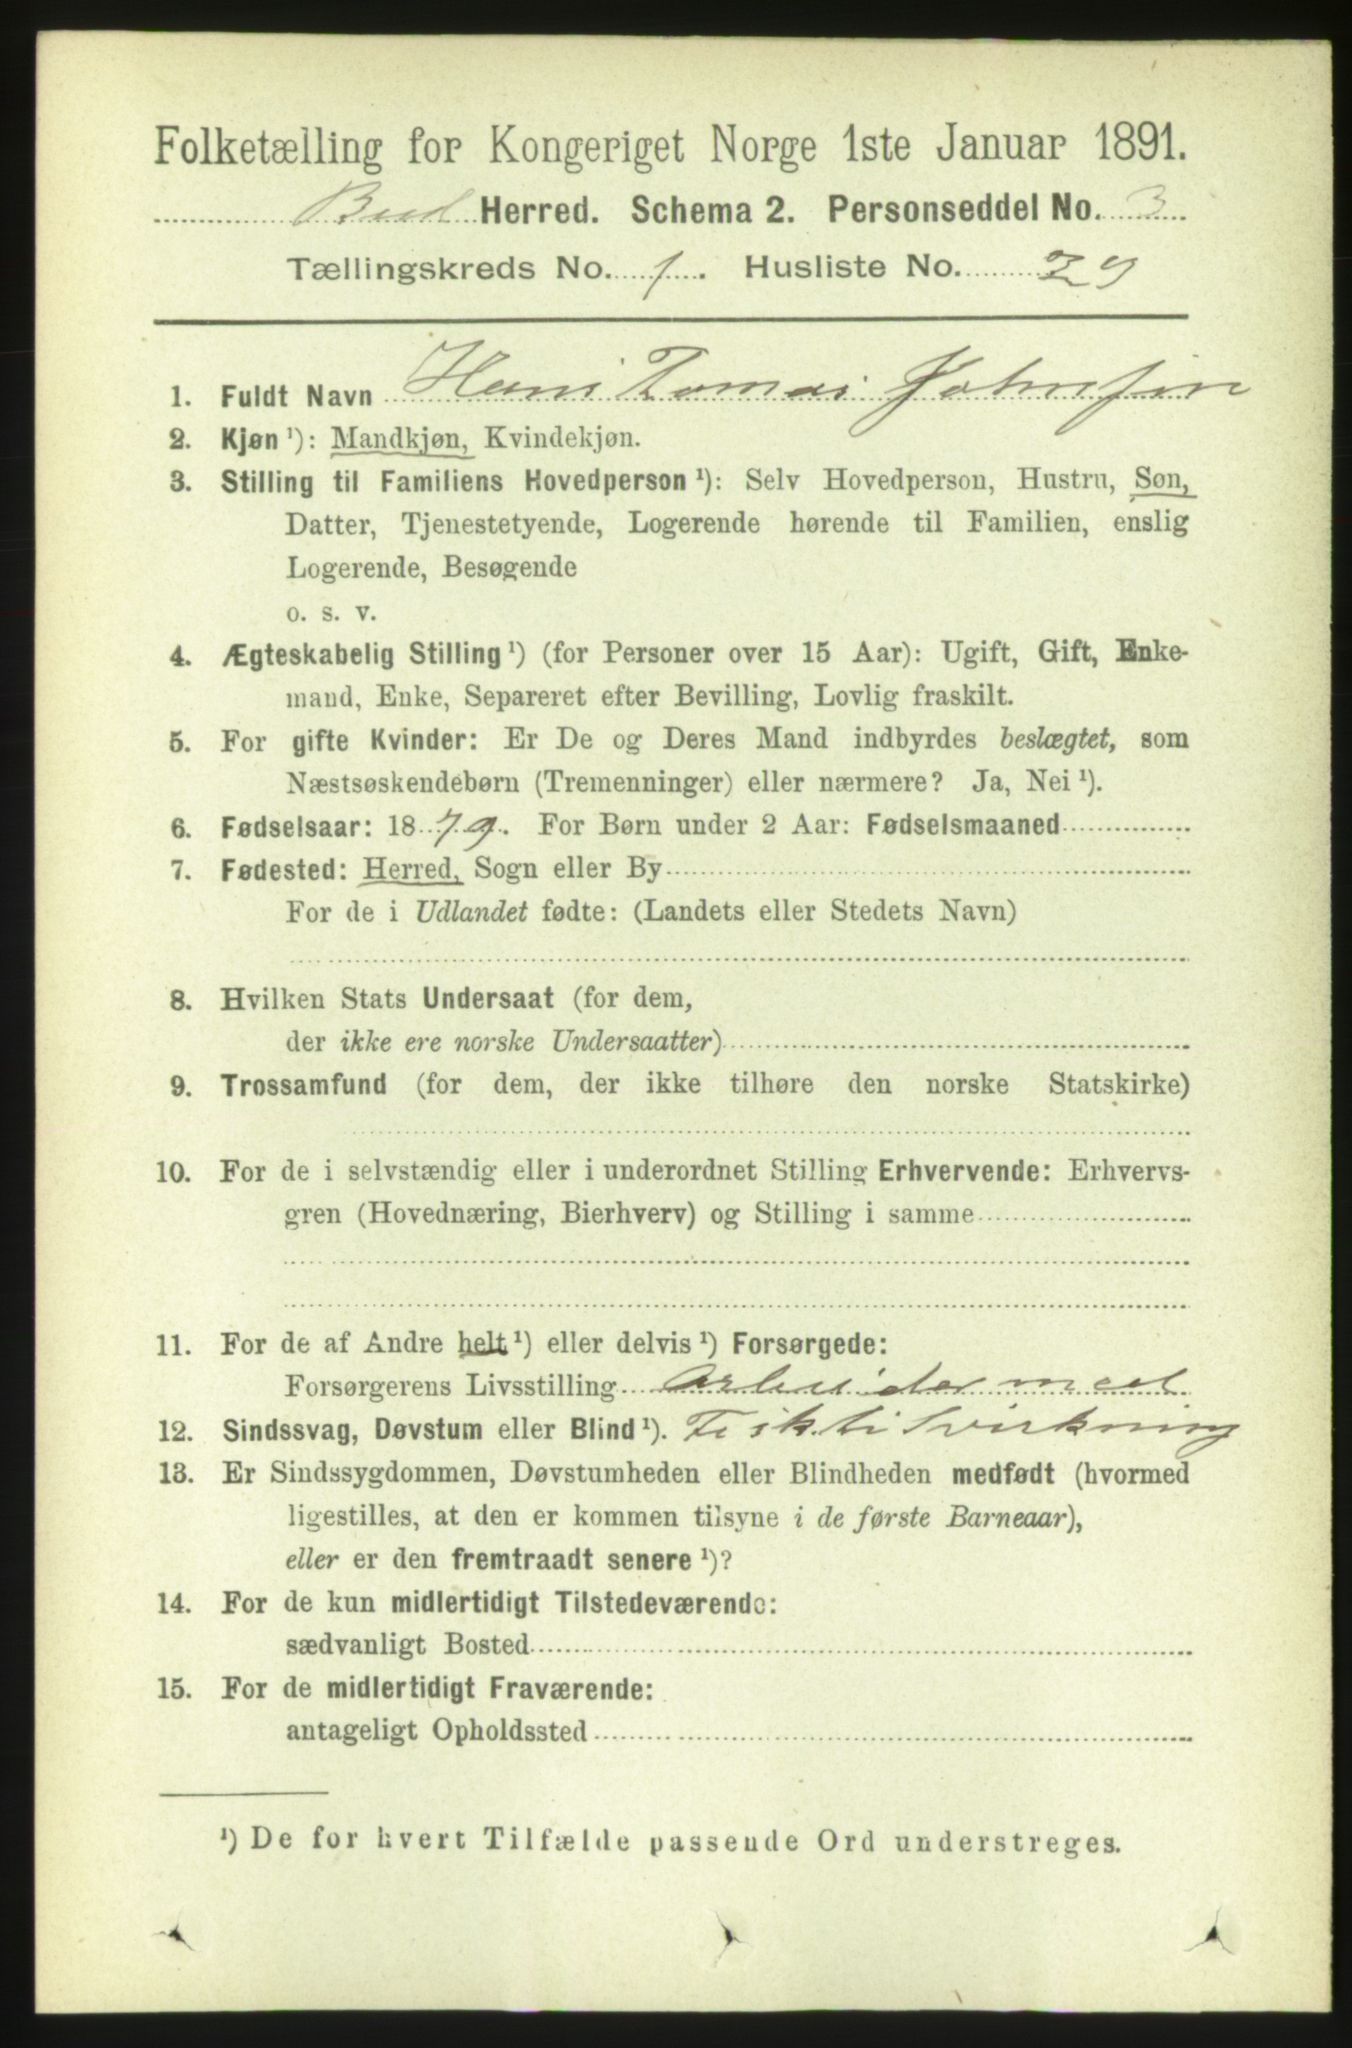 Folketælling for Kongeriget Norge 1ste Januar 1891.
Bud Herred. Schema 2. Personseddel No. 3
Tællingskreds No. 1. Husliste No. 29
1. Fuldt Navn Hans Tomas Johnsen
2. Kjøn ¹): Mandkjøn, Kvindekjøn.
3. Stilling til Familiens Hovedperson ¹): Selv Hovedperson, Hustru, Søn,
Datter, Tjenestetyende, Logerende hørende til Familien, enslig
Logerende, Besøgende
o. s. v.
4. Ægteskabelig Stilling ¹) (for Personer over 15 Aar): Ugift, Gift, Enke-
mand, Enke, Separeret efter Bevilling, Lovlig fraskilt.
5. For gifte Kvinder: Er De og Deres Mand indbyrdes beslægtet, som
Næstsøskendebørn (Tremenninger) eller nærmere? Ja, Nei ¹).
6. Fødselsaar: 1879. For Børn under 2 Aar: Fødselsmaaned
7. Fødested: Herred, Sogn eller By
For de i Udlandet fødte: (Landets eller Stedets Navn)
8. Hvilken Stats Undersaat (for dem,
der ikke ere norske Undersaatter)
9. Trossamfund (for dem, der ikke tilhøre den norske Statskirke)
10. For de i selvstændig eller i underordnet Stilling Erhvervende: Erhvervs-
gren (Hovednæring, Bierhverv) og Stilling i samme
11. For de af Andre helt ¹) eller delvis ¹) Forsørgede:
Forsørgerens Livsstilling Arbeider med
12. Sindssvag, Døvstum eller Blind ¹). Fisktilvirkning
13. Er Sindssygdommen, Døvstumheden eller Blindheden medfødt (hvormed
ligestilles, at den er kommen tilsyne i de første Barneaar),
eller er den fremtraadt senere ¹)?
14. For de kun midlertidigt Tilstedeværende:
sædvanligt Bosted
15. For de midlertidigt Fraværende:
antageligt Opholdssted
¹) De for hvert Tilfælde passende Ord understreges.